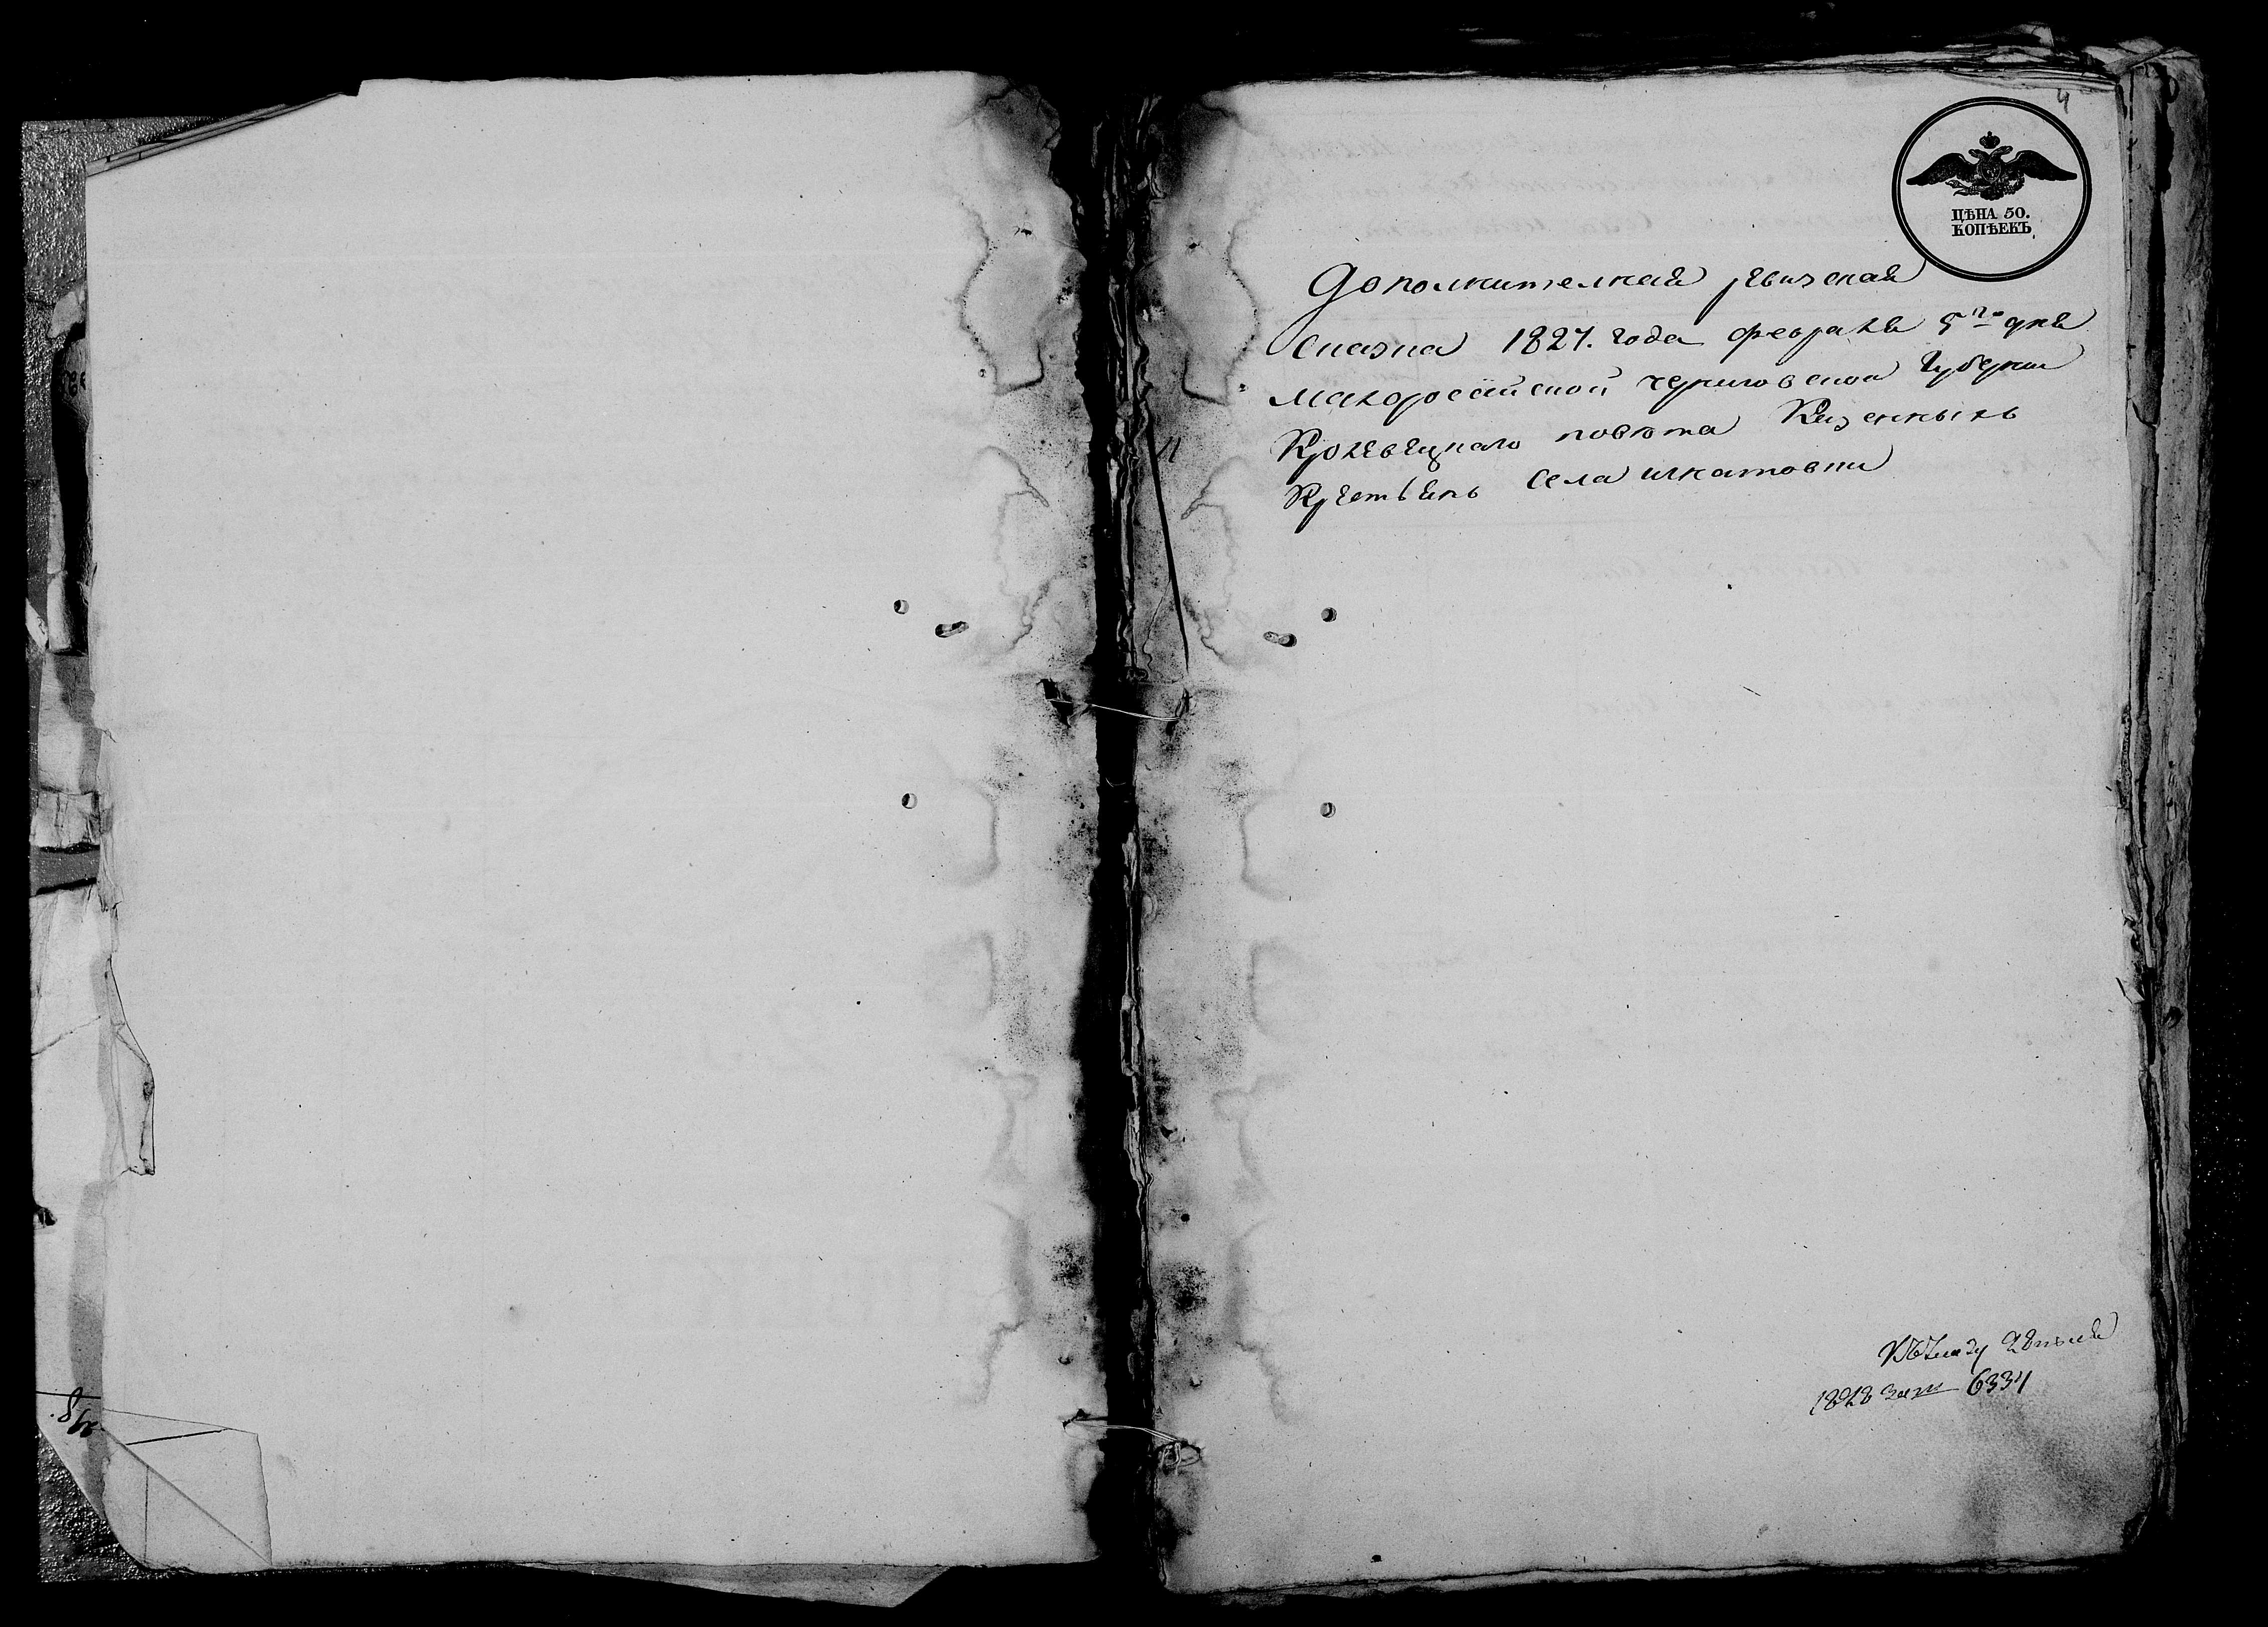 4
ЦѢНА 50.
КОПѢЕКЪ
Дополнителная ревизская
сказка 1827. года февраля 5го дня
малоросѣйской черниговской Губернии
Кролевецкаго повѣта Казенныхъ
Крестьянъ села игнатовки
1828 6334